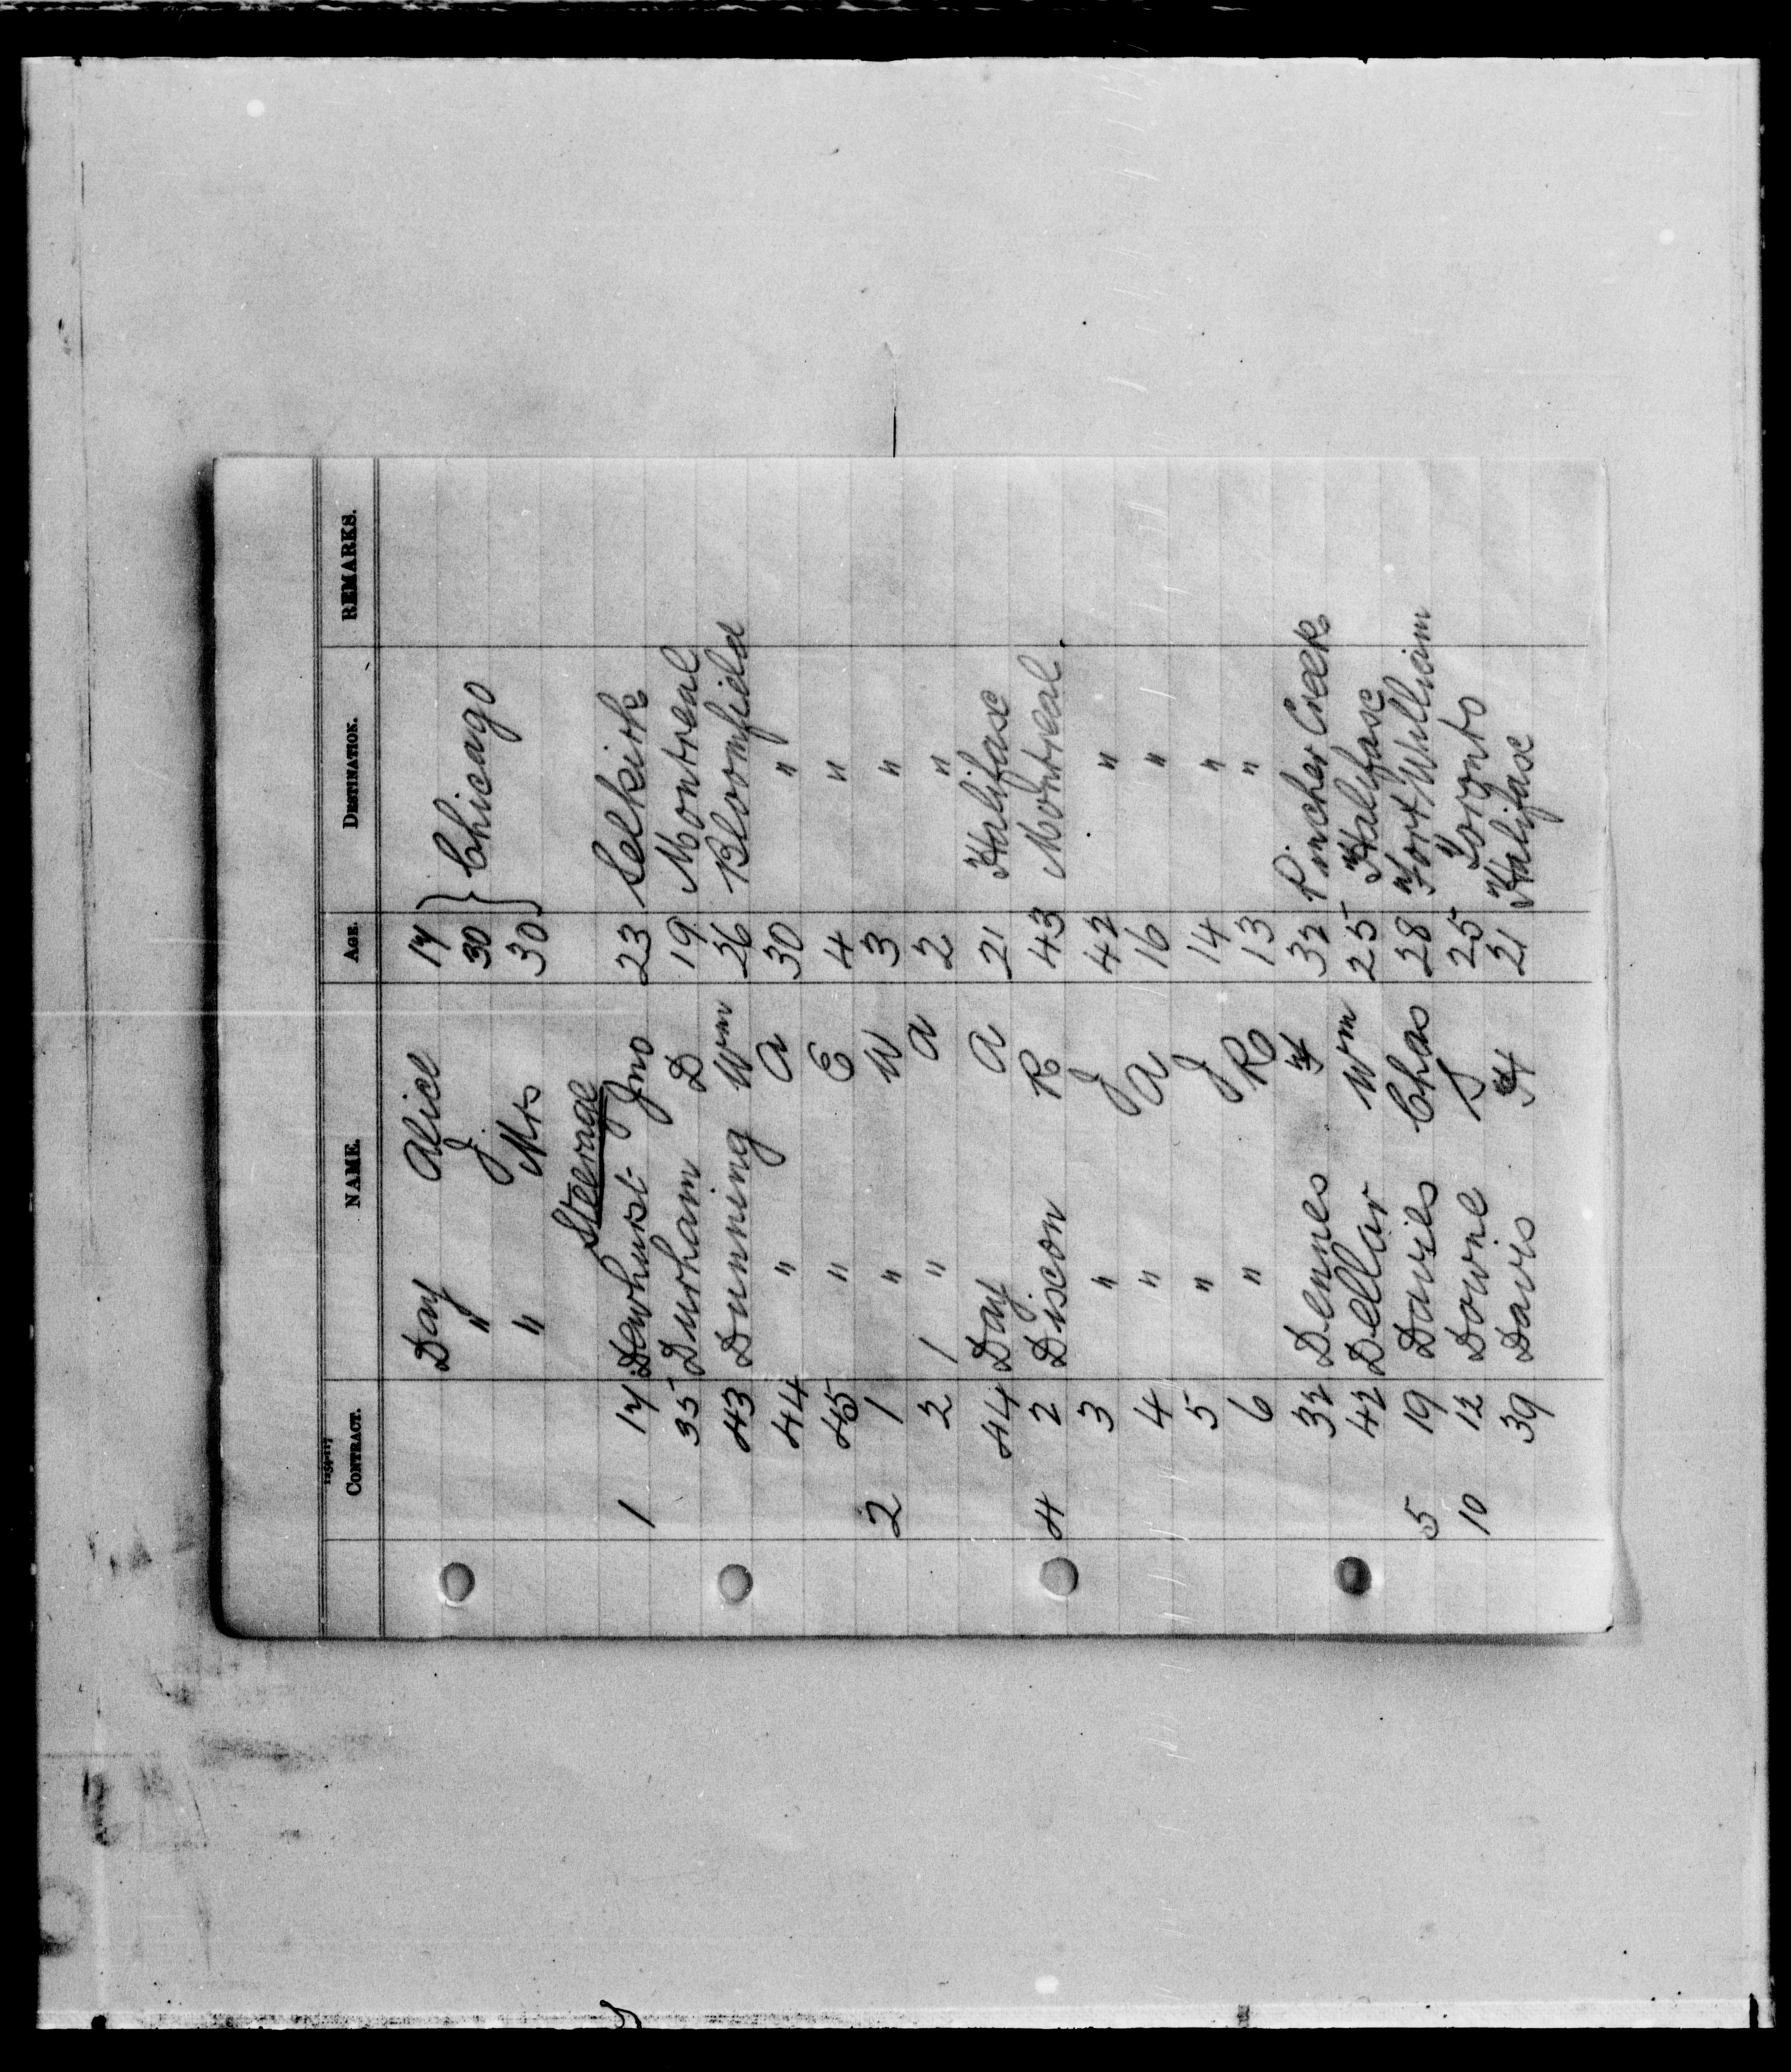 CONTRACT. NAME. AGE. DESTINATION. REMARKS.
Day Alice 17 } Chicago
" J 30
" Mrs 30
Steerage
1 17 Dewhurst Jno 23 Selkirk
35 Durham D 19 Montreal
43 Dunning Wm 26 Bloomfield
44 " A 30 "
45 " E 4 "
2 1 " W 3 "
2 1 " A 2 "
44 Day A 21 Halifax
4 2 Discon R 43 Montreal.
3 " J 42 "
4 " A 16 "
5 " J 14 "
6 " R 13 "
32 Dennes H 32 Pincher Creek
42 Dellar Wm 25 Halifax
5 19 Davies Chas 28 Fort William
10 12 Downe S 25 Toronto
39 Davis H 21 Halifax